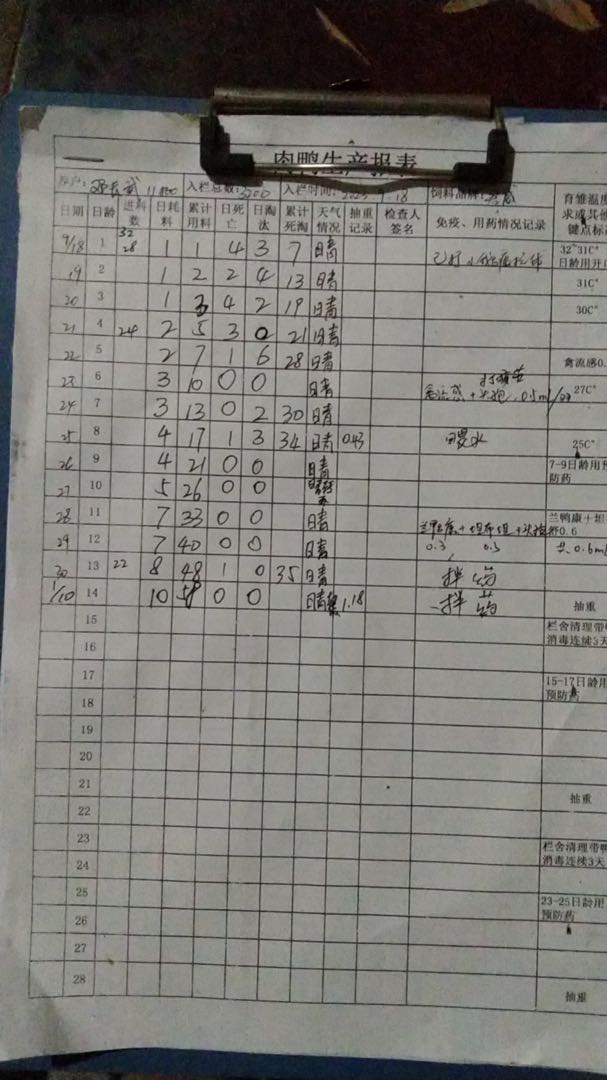 肉鸭生产报表
入栏总数: 入栏时间: 18 饲料品牌:
日期 日龄 进料数 日耗料 累计用料 日死亡 日淘汰 累计死淘 天气情况 抽重记录 检查人签名 免疫、用药情况记录 育雏温度 求或其他 键点标
9/18 1 32 28 1 1 4 3 7 晴 32~31C° 日龄用开
19 2 1 2 2 4 13 晴 31C°
20 3 1 3 4 2 19 晴 30C°
21 4 24 2 5 3 0 21 晴
22 5 2 7 1 6 28 晴 禽流感0.
23 6 3 10 0 0 晴 禽流感+头孢 0.5ml/ 27C°
24 7 3 13 0 2 30 晴
25 8 4 17 1 3 34 晴 0.43 水 25C°
26 9 4 21 0 0 晴 7-9日龄用预防药
27 10 5 26 0 0
28 11 7 33 0 0 晴 兰鸭康+坦
29 12 7 40 0 0 晴 0.3 0.3 共0.6ml 0.6
30 13 22 8 48 1 0 35 晴 拌药
1/10 14 10 58 0 0 晴 1.18 拌药 抽重
15 栏舍清理带鸭
16 消毒连续3天
17 15-17日龄用
18 预防药
19
20
21
22 抽重
23
24 栏舍清理带鸭 消毒连续3天
25
26 23-25日龄用 预防药
27
28 抽重